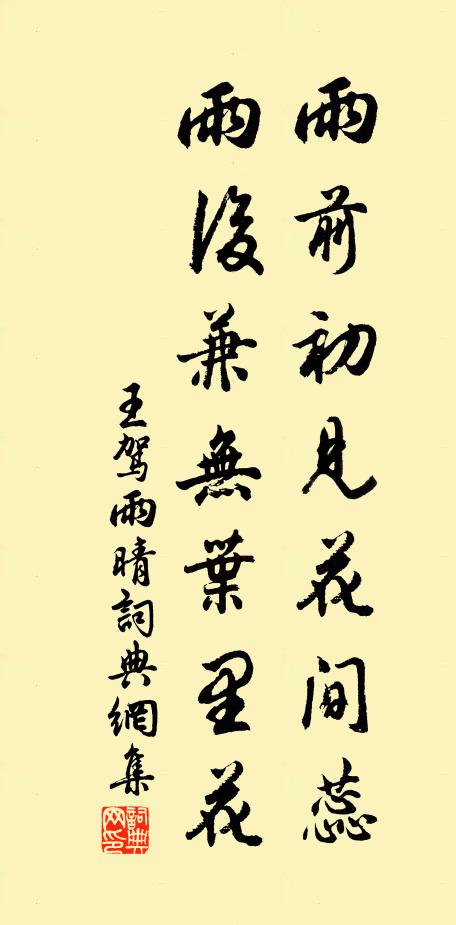 雨前初見花間蕊
雨後兼無葉里花
王駕雨晴詞典網集
詞典網印